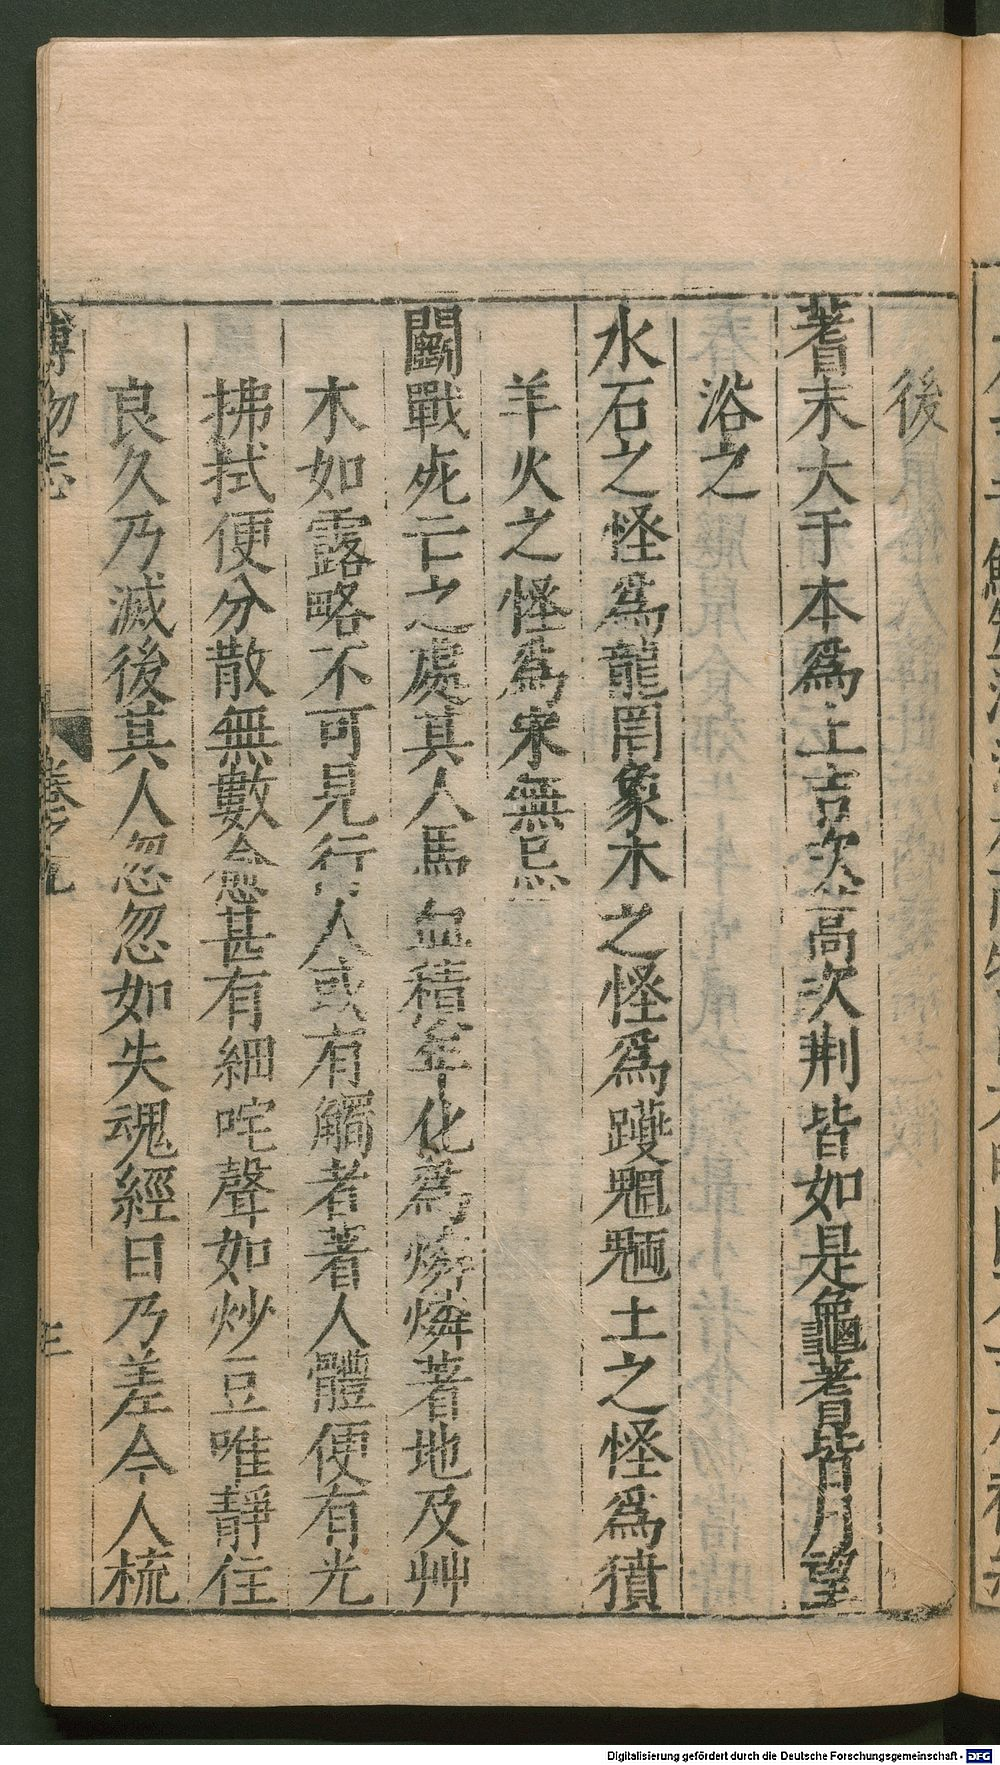 後
蓍末大于本爲上吉次蒿次荆皆如是龜蓍皆月望
浴之
水石之怪爲龍罔象木之怪爲躨魍魎土之怪爲獖
羊火之怪爲宋無忌
鬭戰死亡之處其人馬血積年化爲燐燐著地及艸
木如露略不可見行人或有觸者著人體便有光
拂拭便分散無數愈甚有細咤聲如炒豆唯靜住
良久乃滅後其人忽忽如失魂經日乃差今人梳
博物志 卷之九 三
Digitalisierung gefördert durch die Deutsche Forschungsgemeinschaft - DFG